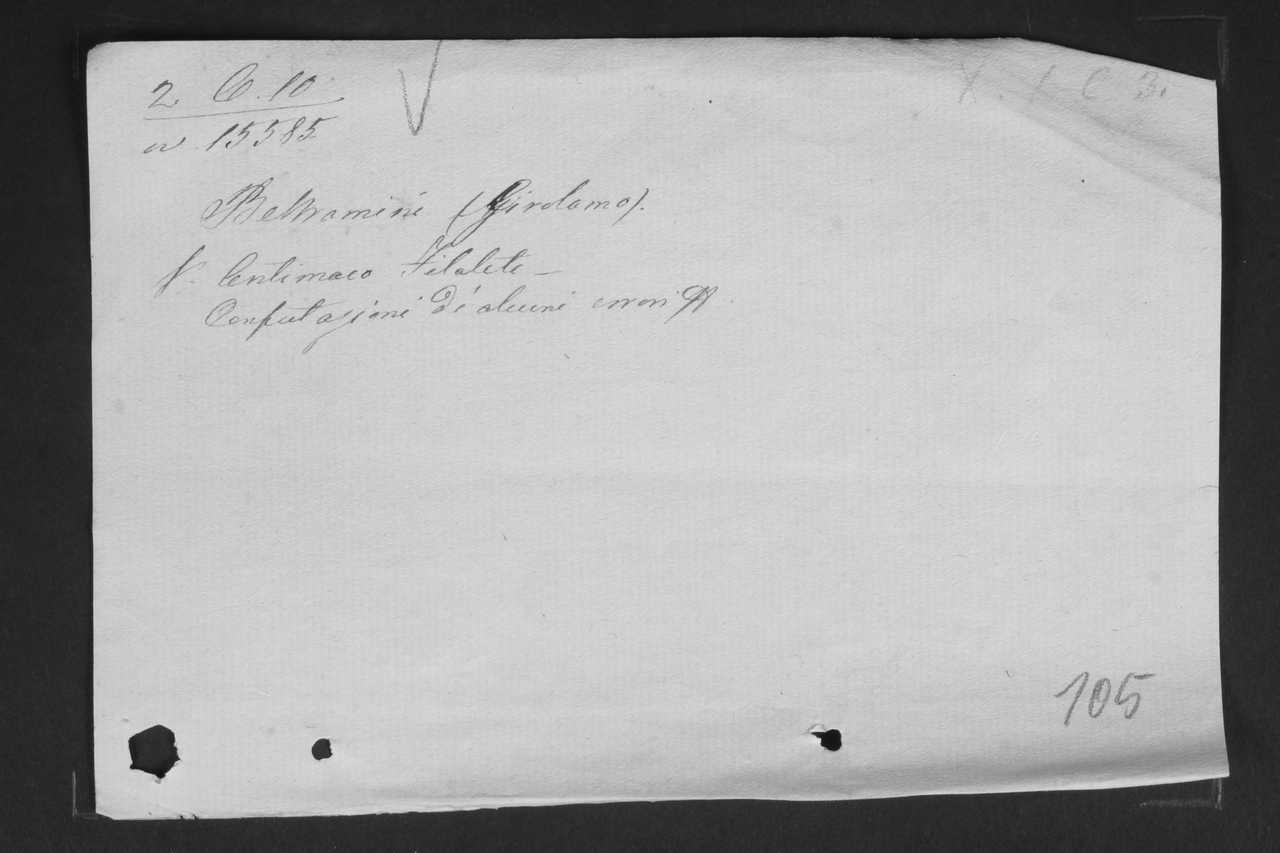 2 C. 10
X. 1 C 3.
n 15585
Beltramini (Girolamo).
V. Lentimaco Filalete —
Confutazioni di alcuni errori
105